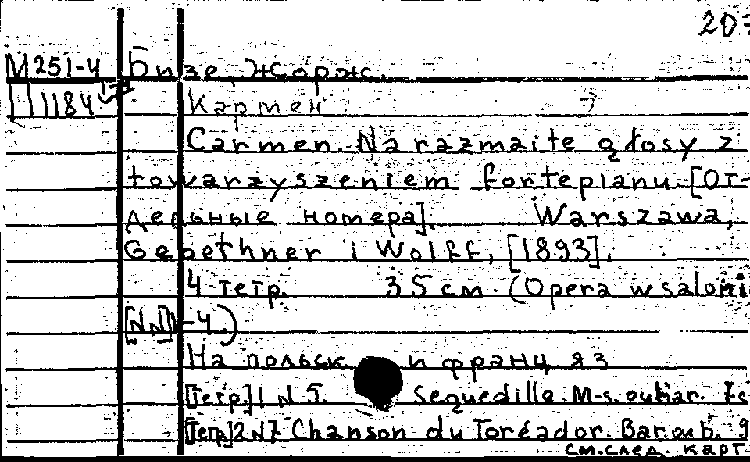 М251-4 Бизе, Жорж.
111184 Кармен
Carmen. Na rozmaite głosy z
towarzyszeniem fortepianu. [От-
дельные номера]. Warszawa,
Gebethner i Wolff, [1893].
4 тетр. 35 cm. (Opera w saloni
[NN]1-4)
На польск и франц яз
[Тетр.]1 N 5. Seguedille. M-s. ou bar.
[Тетр.]2 N 7 Chanson du Toréador. Bar. ou b.
См. след. карт.